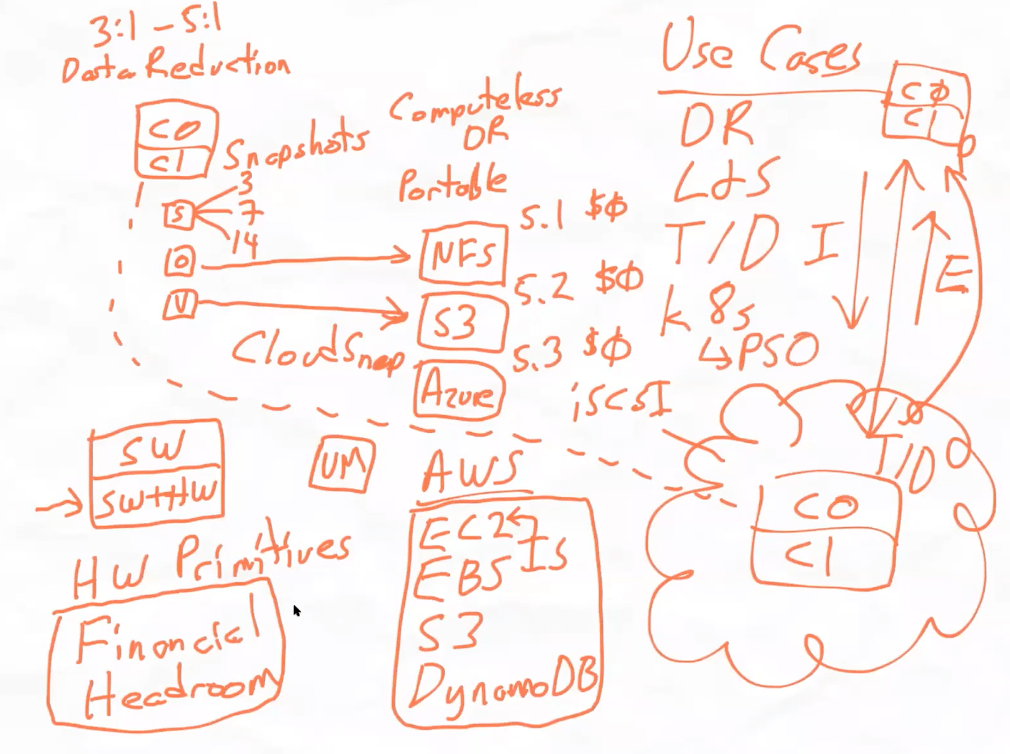 3:1 - 5:1
Data Reduction
C0
C1
Snapshots
3
S
7
14
O
V
CloudSnap
Computeless
OR
Portable
NFS
5.1 $0
S3
5.2 $0
Azure
5.3 $0
Use Cases
C0
C1
DR
L&S
T/D
I
E
k8s
↳PSO
iSCSI
T/D
C0
C1
SW
SW+HW
HW Primitives
Financial
Headroom
VM
AWS
EC2
IS
EBS
S3
DynamoDB